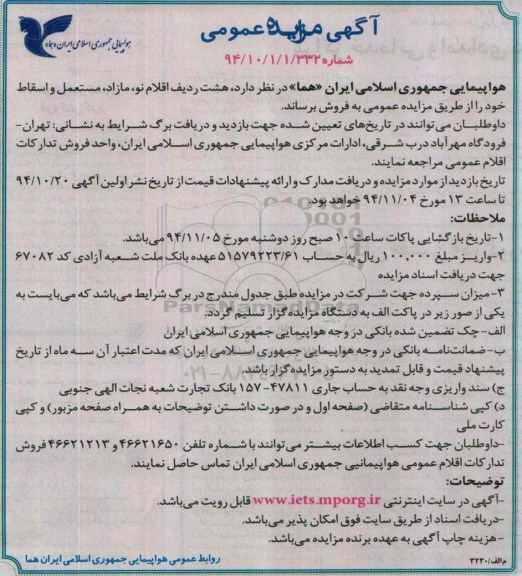 آگهی مزایده عمومی
شماره ۹۴/۱۰/۱/۱/۳۳۲
هواپیمایی جمهوری اسلامی ایران «هما»
هواپیمایی جمهوری اسلامی ایران «هما» در نظر دارد، هشت ردیف اقلام نو، مازاد، مستعمل و اسقاط
خود را از طریق مزایده عمومی به فروش برساند.
داوطلبان می‌توانند در تاریخ‌های تعیین شده جهت بازدید و دریافت برگ شرایط به نشانی: تهران-
فرودگاه مهرآباد درب شرقی، ادارات مرکزی هواپیمایی جمهوری اسلامی ایران، واحد فروش تدارکات
اقلام عمومی مراجعه نمایند.
تاریخ بازدید از موارد مزایده و دریافت مدارک و ارائه پیشنهادات قیمت از تاریخ نشر اولین آگهی ۹۴/۱۰/۲۰
تا ساعت ۱۳ مورخ ۹۴/۱۱/۰۴ خواهد بود.
ملاحظات:
۱-تاریخ بازگشایی پاکات ساعت ۱۰ صبح روز دوشنبه مورخ ۹۴/۱۱/۰۵ می‌باشد.
۲-واریز مبلغ ۱۰۰,۰۰۰ ریال به حساب ۵۱۵۷۹۲۲۳/۶۱ عهده بانک ملت شعبه آزادی کد ۶۷۰۸۲
جهت دریافت اسناد مزایده
۳-میزان سپرده جهت شرکت در مزایده طبق جدول مندرج در برگ شرایط می‌باشد که می‌بایست به
یکی از صور زیر در پاکت الف به دستگاه مزایده گزار تسلیم گردد.
الف- چک تضمین شده بانکی در وجه هواپیمایی جمهوری اسلامی ایران
ب- ضمانت‌نامه بانکی در وجه هواپیمایی جمهوری اسلامی ایران که مدت اعتبار آن سه ماه از تاریخ
پیشنهاد قیمت و قابل تمدید به دستور مزایده‌گزار باشد.
ج) سند واریزی وجه نقد به حساب جاری ۴۷۸۱۱-۱۵۷ بانک تجارت شعبه نجات الهی جنوبی
د) کپی شناسنامه متقاضی (صفحه اول و در صورت داشتن توضیحات به همراه صفحه مزبور) و کپی
کارت ملی
-داوطلبان جهت کسب اطلاعات بیشتر می‌توانند با شماره تلفن ۴۶۶۲۱۶۵۰ و ۴۶۶۲۱۲۱۳ فروش
تدارکات اقلام عمومی هواپیمایی جمهوری اسلامی ایران تماس حاصل نمایند.
توضیحات:
-آگهی در سایت اینترنتی www.iets.mporg.ir قابل رویت می‌باشد.
-دریافت اسناد از طریق سایت فوق امکان پذیر می‌باشد.
-هزینه چاپ آگهی به عهده برنده مزایده می‌باشد.
روابط عمومی هواپیمایی جمهوری اسلامی ایران هما
م الف/۳۲۳۰